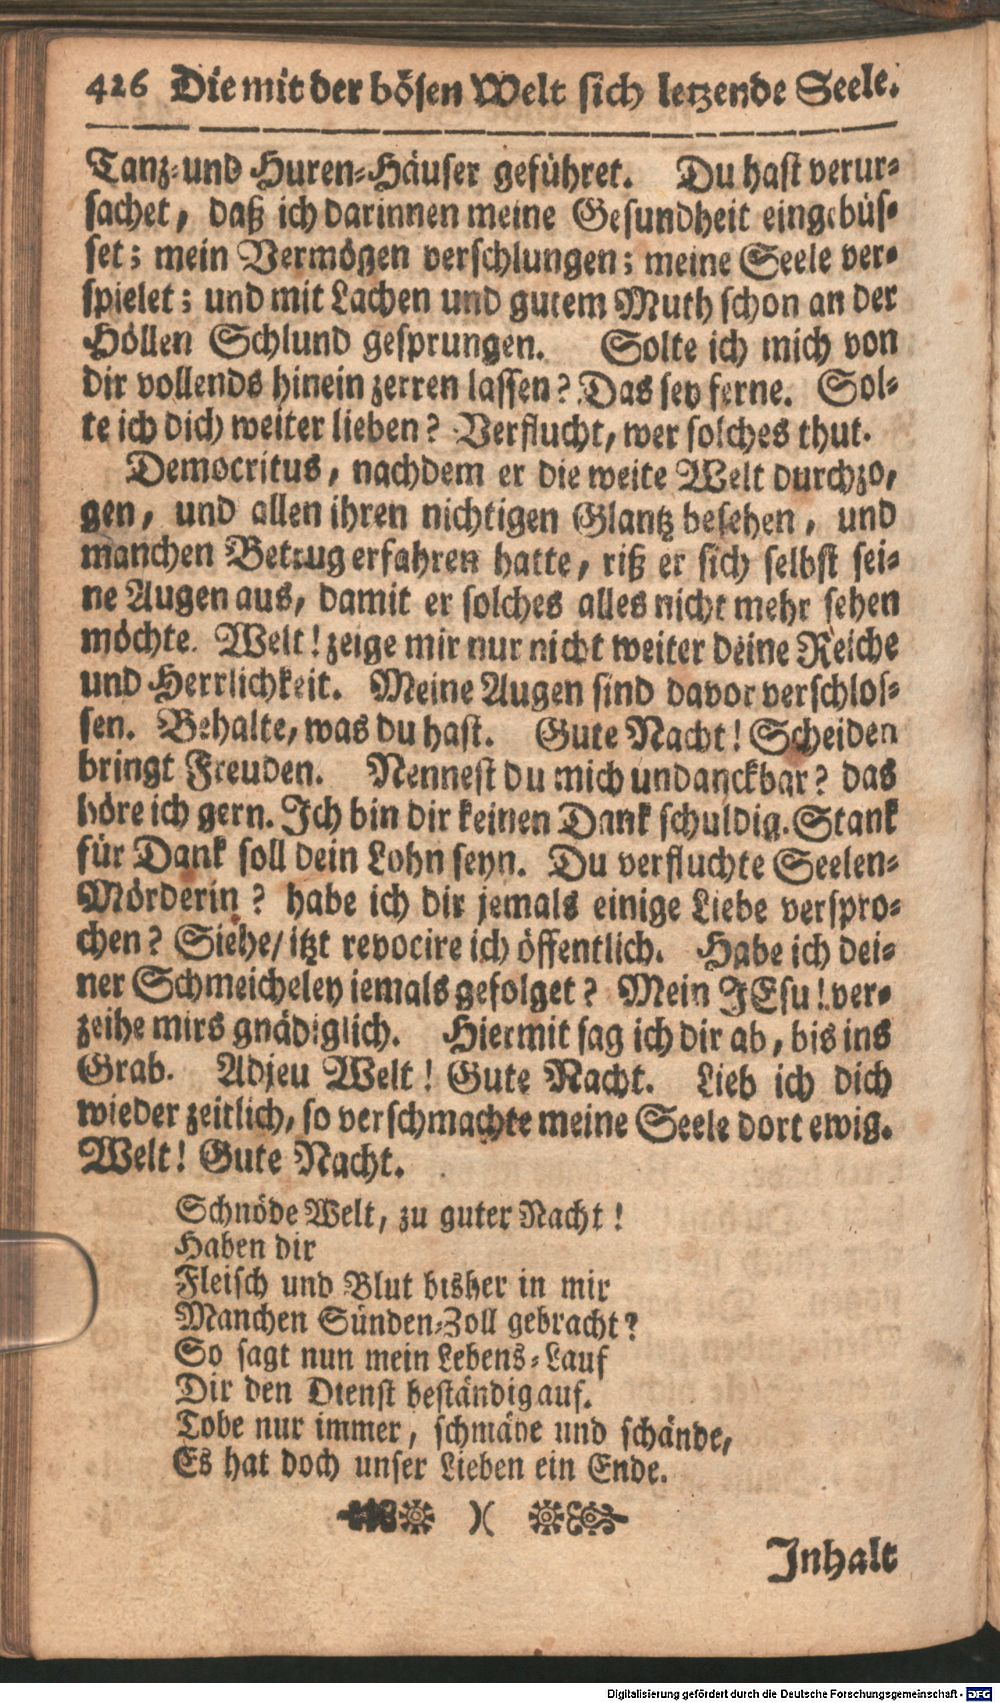 426 Die mit der bösen Welt sich letzende Seele.
Tanz-und Huren-Häuser geführet. Du hast verur-
sachet, daß ich darinnen meine Gesundheit eingebüs-
set; mein Vermögen verschlungen; meine Seele ver-
spielet; und mit Lachen und gutem Muth schon an der
Höllen Schlund gesprungen. Solte ich mich von
dir vollends hinein zerren lassen? Das sey ferne. Sol-
te ich dich weiter lieben? Verflucht, wer solches thut.
Democritus, nachdem er die weite Welt durchzo,
gen, und allen ihren nichtigen Glantz besehen, und
manchen Betrug erfahren hatte, riß er sich selbst sei-
ne Augen aus, damit er solches alles nicht mehr sehen
möchte. Welt! zeige mir nur nicht weiter deine Reiche
und Herrlichkeit. Meine Augen sind davor verschlos-
sen. Behalte, was du hast. Gute Nacht! Scheiden
bringt Freuden. Nennest du mich undanckbar? das
höre ich gern. Ich bin dir keinen Dank schuldig. Stank
für Dank soll dein Lohn seyn. Du verfluchte Seelen-
Mörderin? habe ich dir jemals einige Liebe verspro-
chen? Siehe/ itzt revocire ich öffentlich. Habe ich dei-
ner Schmeicheley iemals gefolget? Mein JEsu! ver-
zeihe mirs gnädiglich. Hiermit sag ich dir ab, bis ins
Grab. Adjeu Welt! Gute Nacht. Lieb ich dich
wieder zeitlich, so verschmachte meine Seele dort ewig.
Welt! Gute Nacht.
Schnöde Welt, zu guter Nacht!
Haben dir
Fleisch und Blut bisher in mir
Manchen Sünden-Zoll gebracht?
So sagt nun mein Lebens-Lauf
Dir den Dienst beständig auf.
Tobe nur immer, schmähe und schände,
Es hat doch unser Lieben ein Ende.
)(
Inhalt
Digitalisierung gefördert durch die Deutsche Forschungsgemeinschaft - DFG